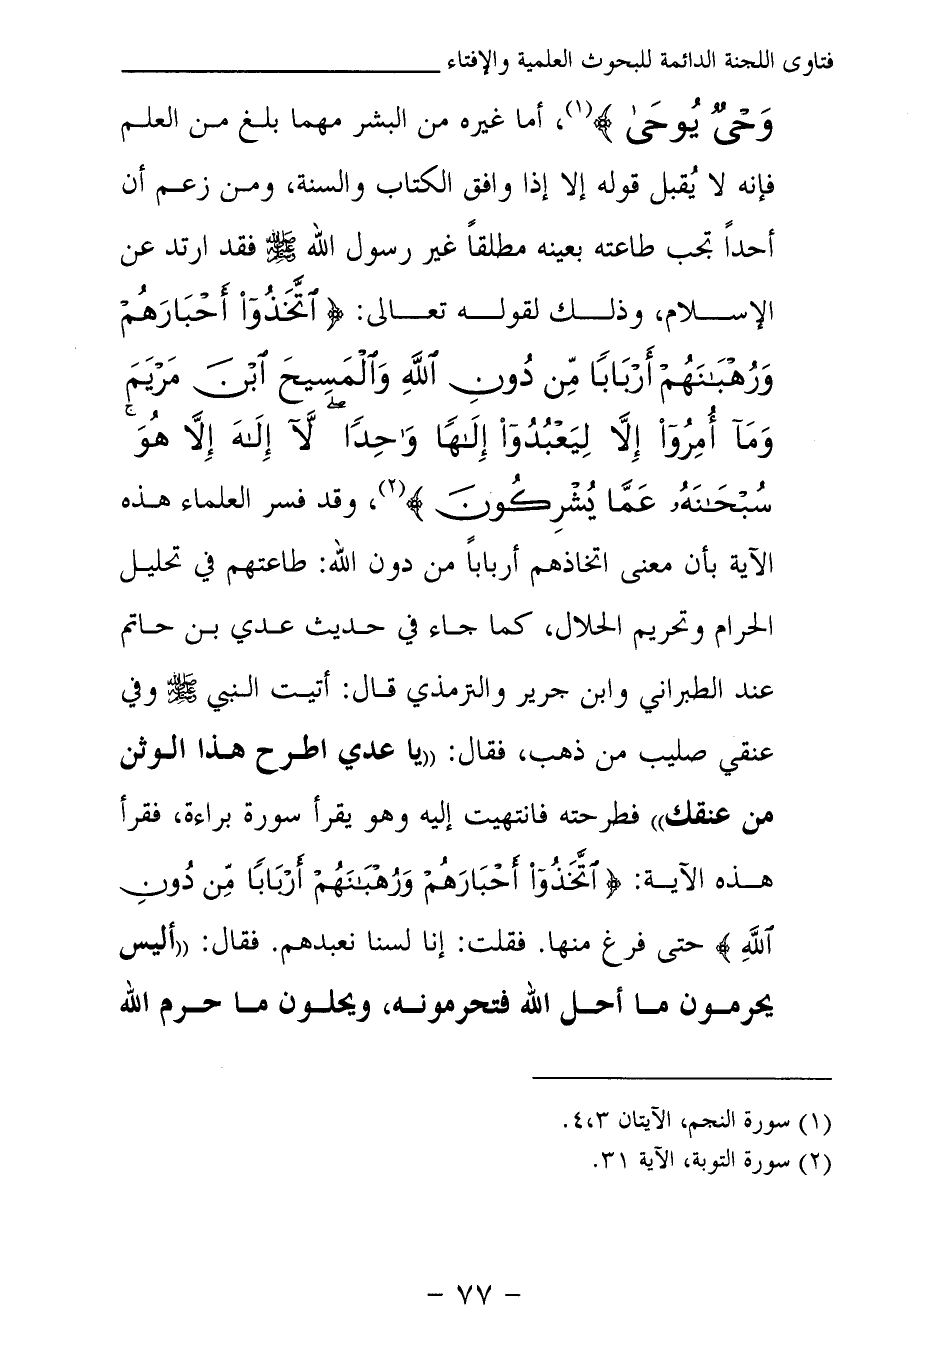 فتاوى اللجنة الدائمة للبحوث العلمية والإفتاء
وَحْىٌ يُوحَىٰ ﴾(١)، أما غيره من البشر مهما بلغ من العلم
فإنه لا يُقبل قوله إلا إذا وافق الكتاب والسنة، ومن زعم أن
أحداً تجب طاعته بعينه مطلقاً غير رسول الله ﷺ فقد ارتد عن
الإسلام، وذلك لقوله تعالى: ﴿ ٱتَّخَذُوٓا۟ أَحْبَارَهُمْ
وَرُهْبَـٰنَهُمْ أَرْبَابًا مِّن دُونِ ٱللَّهِ وَٱلْمَسِيحَ ٱبْنَ مَرْيَمَ
وَمَآ أُمِرُوٓا۟ إِلَّا لِيَعْبُدُوٓا۟ إِلَـٰهًا وَٰحِدًا ۖ لَّآ إِلَـٰهَ إِلَّا هُوَ ۚ
سُبْحَـٰنَهُۥ عَمَّا يُشْرِكُونَ ﴾(٢)، وقد فسر العلماء هذه
الآية بأن معنى اتخاذهم أرباباً من دون الله: طاعتهم في تحليل
الحرام وتحريم الحلال، كما جاء في حديث عدي بن حاتم
عند الطبراني وابن جرير والترمذي قال: أتيت النبي ﷺ وفي
عنقي صليب من ذهب، فقال: ((يا عدي اطرح هذا الوثن
من عنقك)) فطرحته فانتهيت إليه وهو يقرأ سورة براءة، فقرأ
هذه الآية: ﴿ ٱتَّخَذُوٓا۟ أَحْبَارَهُمْ وَرُهْبَـٰنَهُمْ أَرْبَابًا مِّن دُونِ
ٱللَّهِ ﴾ حتى فرغ منها. فقلت: إنا لسنا نعبدهم. فقال: ((أليس
يحرمون ما أحل الله فتحرمونه، ويحلون ما حرم الله
(١) سورة النجم، الآيتان ٣، ٤.
(٢) سورة التوبة، الآية ٣١.
- ٧٧ -